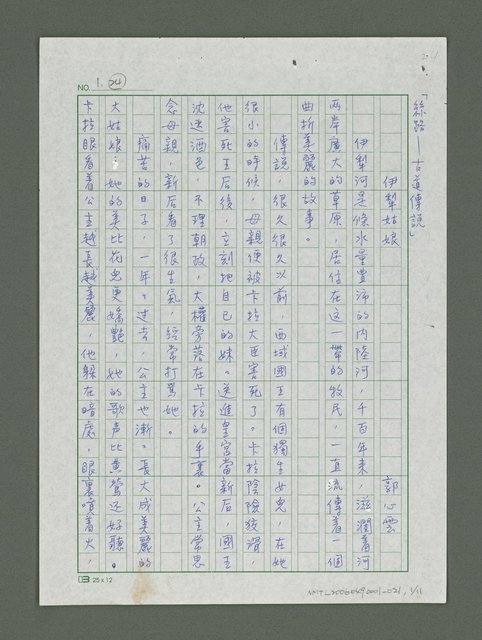 「絲路—古道傳說」
伊犁姑娘
郭心雲
伊犁河是條水量豐沛的內陸河，千百年來，滋潤著河
兩岸廣大的草原，居住在這一帶的牧民，一直流傳著一個
曲折美麗的故事。
傳說，很久很久以前，西域國王有個獨生女兒，在她
很小的時候，母親便被卡拉大臣害死了。卡拉陰險狡猾，
他害死王后後，立刻把自己的妹〻送進皇宮當新后，國王
沈迷酒色，不理朝政，大權旁落在卡拉的手裏。公主常思
念母親，新后看了很生氣，經常打罵她。
痛苦的日子，一年〻過去，公主也漸〻長大成美麗的
大姑娘，她的美比花兒更嬌艷，她的歌声比黃鶯还好聽。
卡拉眼看着公主越長越美麗，他躲在暗處，眼裏噴着火，
NO. 1. 24
25×12
NMTL20060490001-021, 1/11